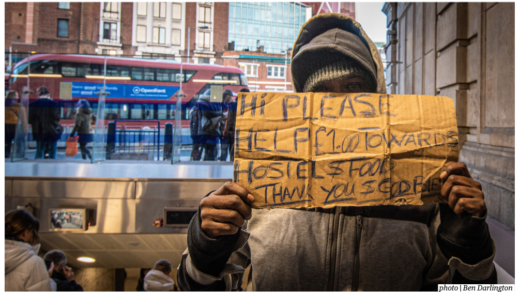 HI PLEASE
HELP £1.00 TOWARDS
HOSTEL & FOOD
THANK YOU & GOD BLE
OpenRent
photo | Ben Darlington